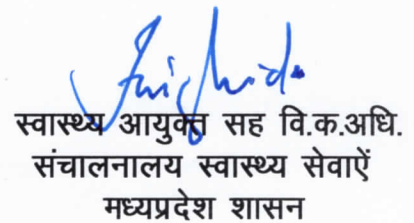 स्वास्थ्य आयुक्त सह वि.क.अधि.
संचालनालय स्वास्थ्य सेवाऐं
मध्यप्रदेश शासन